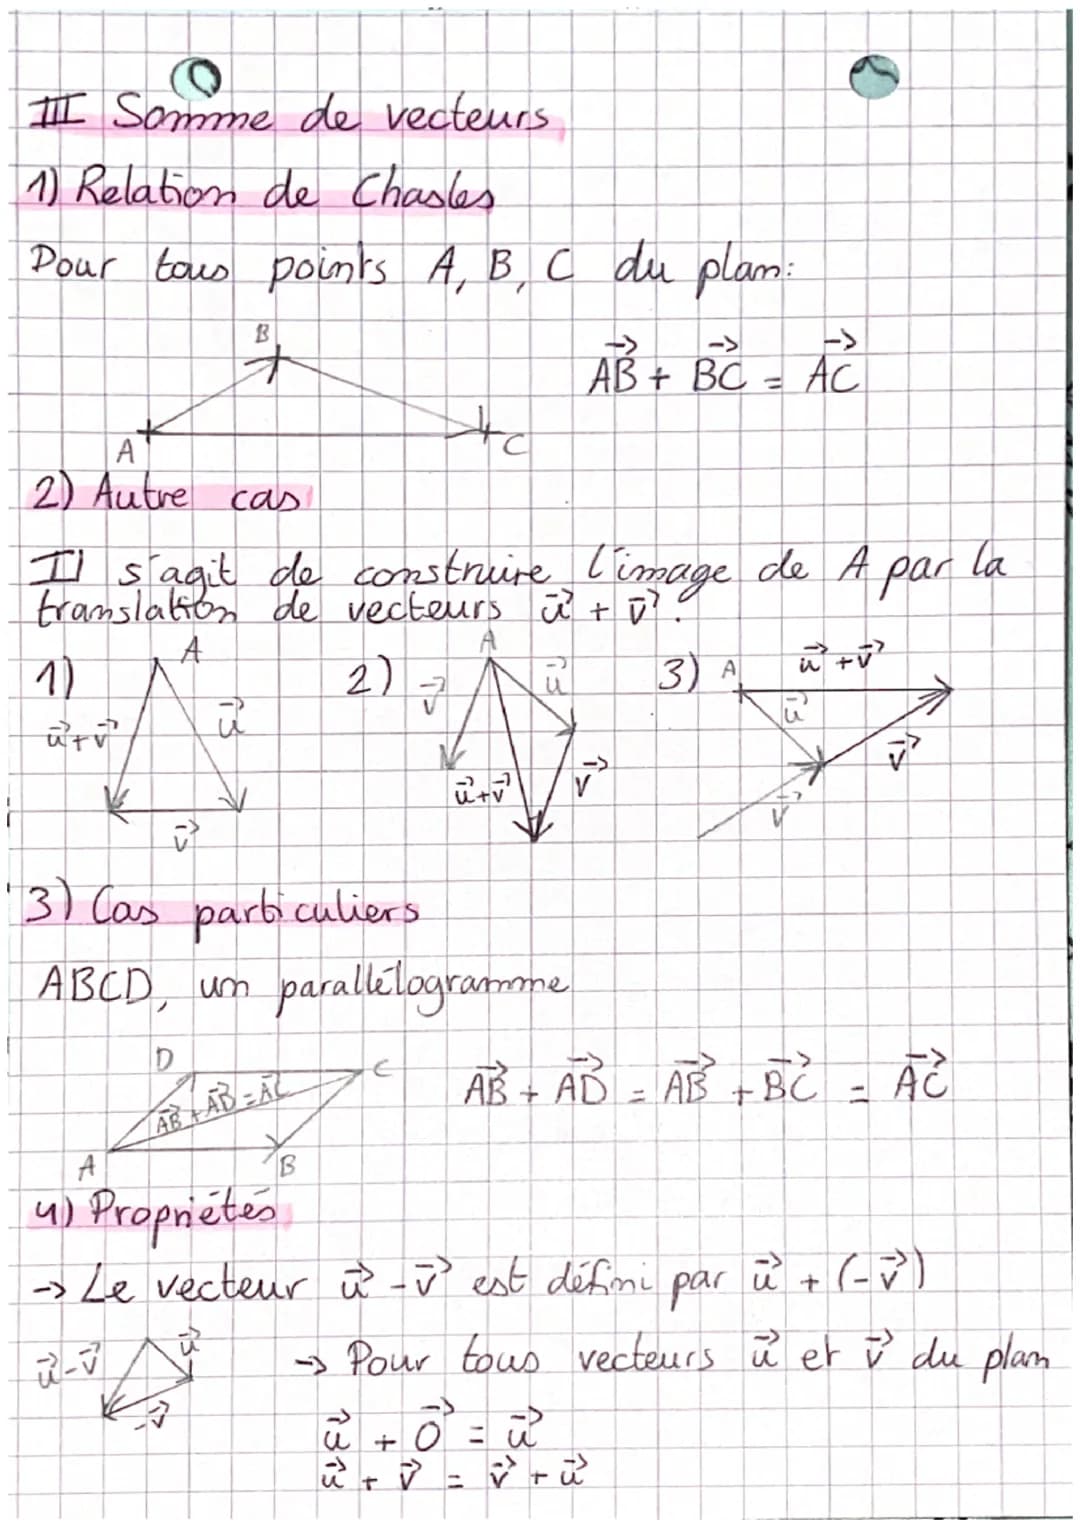 III Somme de vecteurs
1) Relation de Chasles
Pour tous points A, B, C du plan:
B
A
C
AB⃗ + BC⃗ = AC⃗
2) Autre cas
Il s'agit de construire l'image de A par la
translation de vecteurs u⃗ + v⃗.
1) A u⃗+v⃗ u⃗ v⃗
2) A v⃗ u⃗ u⃗+v⃗ v⃗
3) A u⃗+v⃗ u⃗ v⃗ v⃗
3) Cas particuliers
ABCD, un parallélogramme
D C
AB⃗ + AD⃗ = AC⃗
A B
AB⃗ + AD⃗ = AB⃗ + BC⃗ = AC⃗
4) Propriétés
→ Le vecteur u⃗ - v⃗ est défini par u⃗ + (-v⃗)
u⃗-v⃗ u⃗ -v⃗
→ Pour tous vecteurs u⃗ et v⃗ du plan
u⃗ + 0⃗ = u⃗
u⃗ + v⃗ = v⃗ + u⃗